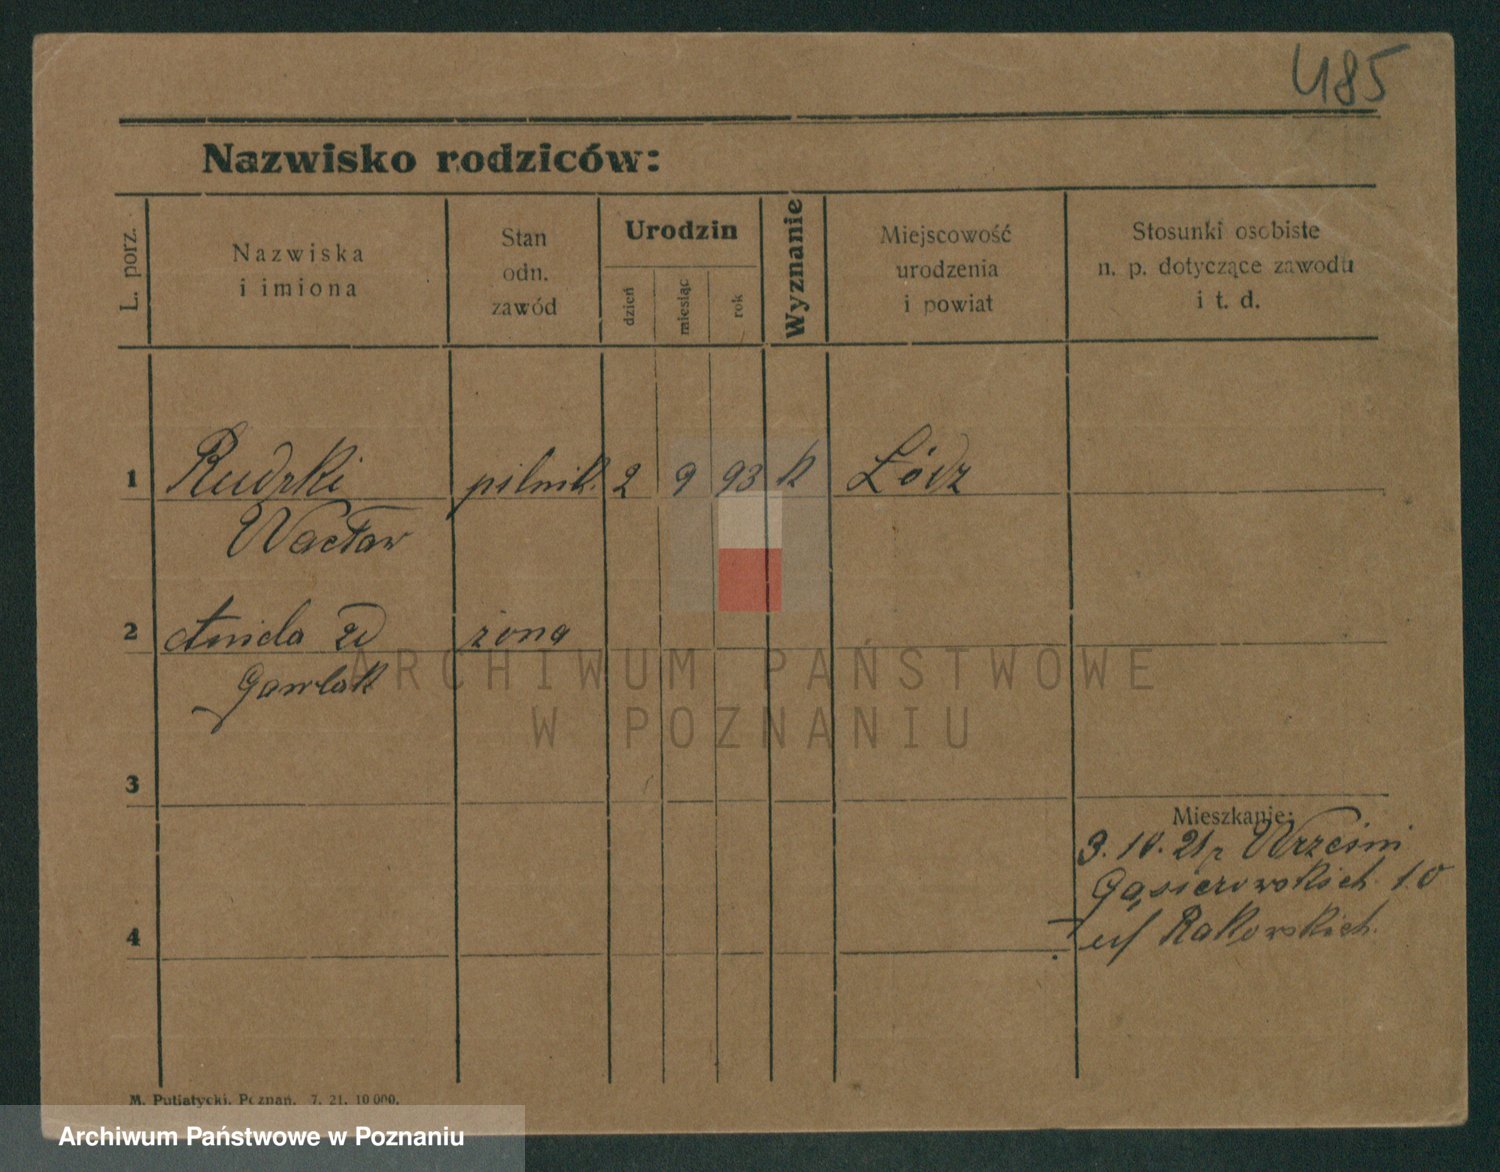 485
Nazwisko rodziców:
L. porz.
Nazwiska
i imiona
Stan
odn.
zawód
Urodzin
dzień
miesiąc
rok
Wyznanie
Miejscowość
urodzenia
i powiat
Stosunki osobiste
n. p. dotyczące zawodu
i t. d.
1 Rudzki pilnik. 2 9 93 k Łódz
Wacław
2 żona
Gawlak
ARCHIWUM PAŃSTWOWE
W POZNANIU
3
Mieszkanie:
3. 10. 21 Wrześni
Gąsiorowskich 10
4
Rakowskich.
M. Putiatycki, Poznań. 7. 21. 10 000.
Archiwum Państwowe w Poznaniu